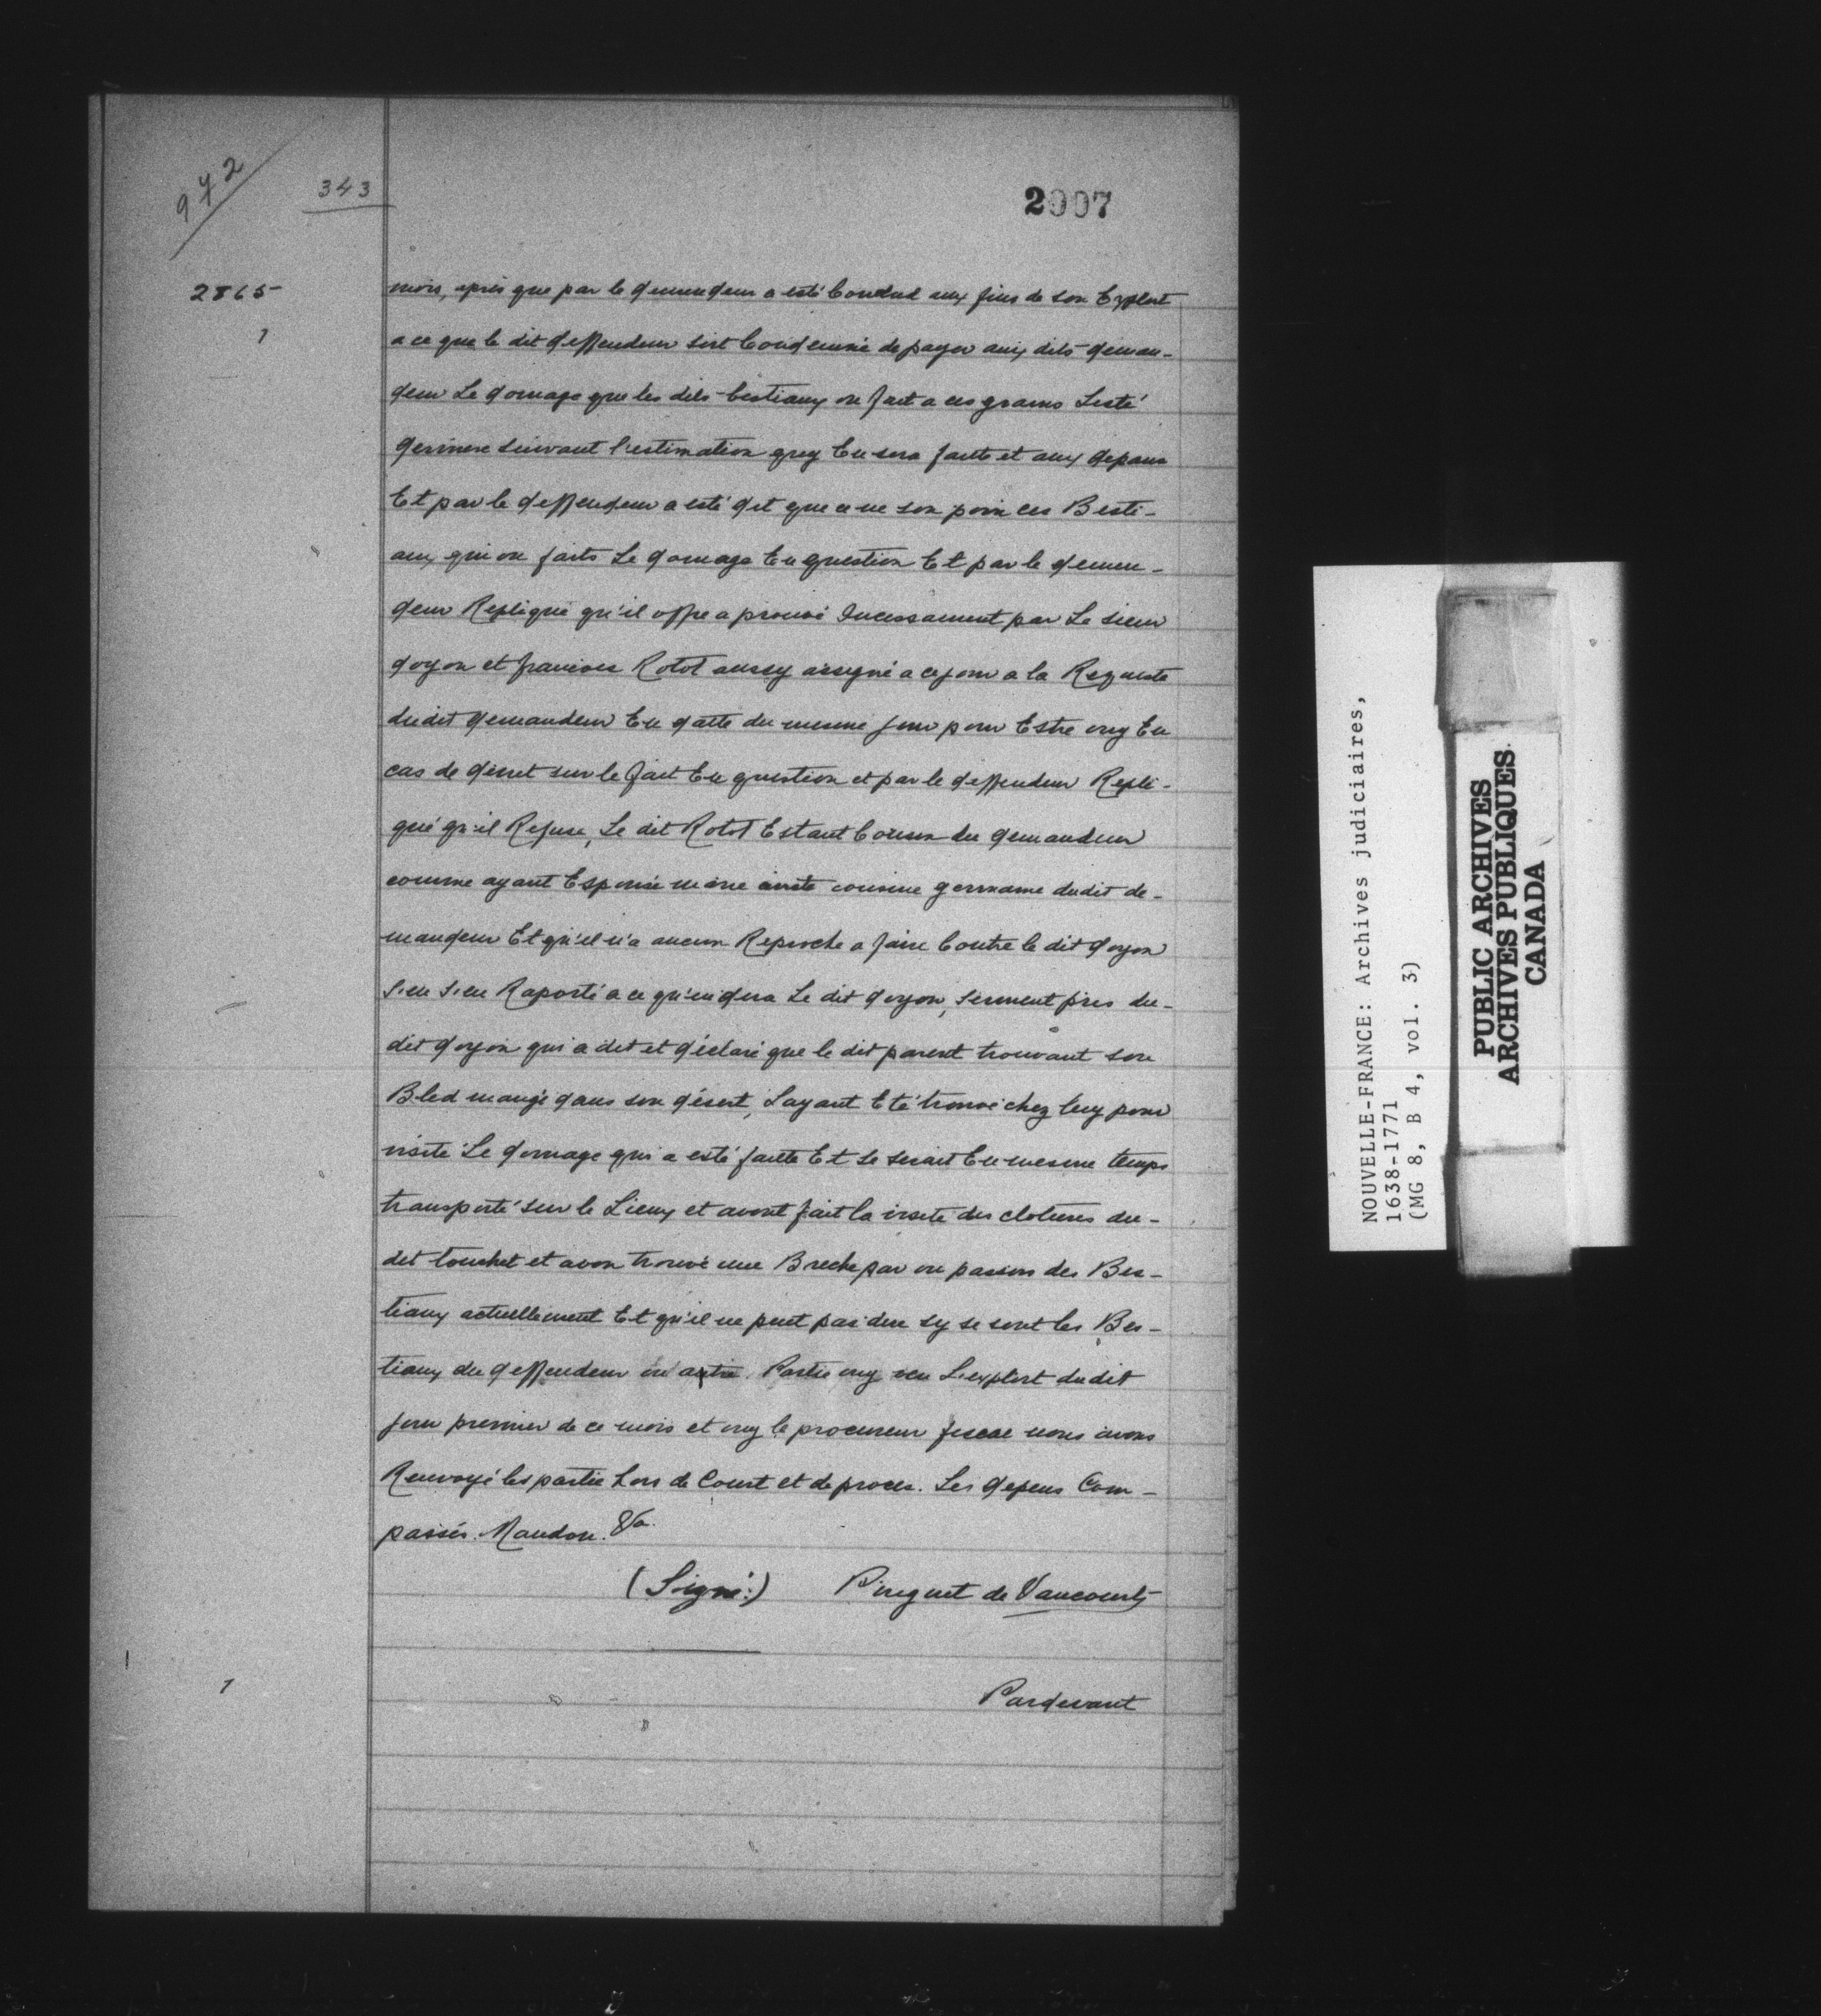 972
343
2007
2865
1
mois, apres que par le demendeur a esté Conclud aux fins de son Exploit
a ce que le dit deffendeur sirt Condemné de payer aux dits deman-
deur Le domage que les dits bestiaux on fait a ces grains Lesté
derniere suivant l'estimation quy En sera faite et aux depans
Et par le deffendeur a esté dit que ce ne son poin ces Besti-
aux qui on faits Le domage En question Et par le demen-
deur Repliqué qu'il offre a prouvé Incessament par Le sieur
doyon et francois Rotot aussy assigné a ce jour a la Requeste
dudit demandeur En datte du mesme jour pour Estre ouy En
cas de desnet sur le fait En question et par le deffendeur Repli-
qué qu'il Refuse, Le dit Rotot Estant Cousin du demandeur
comme ayant Espousé marie cousine germaine dudit de-
mandeur Et qu'il n'a aucun Reproche a faire Contre le dit doyon
S'en S'en Raporté a ce qu'en dira Le dit doyon, serment pris du-
dit doyon qui a dit et déclaré que le dit parent trouvant son
Bled mangé dans son désert, Layant Eté trouvé chez luy pour
visité Le domage qui a esté faitte Et se serait En mesme temps
transporté sur le Lieux et avont fait la visite des clotures du-
dit touchet et avon trouvé une Breche par ou passons des Bes-
tiaux actuellement Et qu'il ne peut pas dire sy se sont les Bes-
tiaux du deffendeur ou autre. Partie ouy veu L'exploit dudit
jour premier de ce mois et ouy le procureur fiscal nous avons
Renvoyé les partie hors de Court et de proces. Les depens Com-
passés. Mandon. &a.
(Signé:) Pinguet de Vaucours
1
Pardevant
NOUVELLE-FRANCE: Archives judiciaires,
1638-1771
(MG 8, B 4, vol. 3)
PUBLIC ARCHIVES
ARCHIVES PUBLIQUES
CANADA